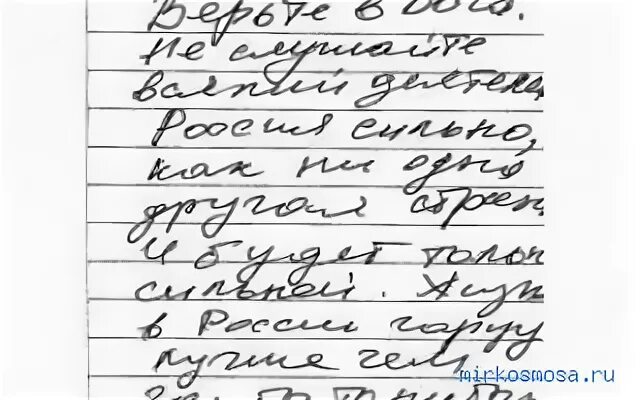 Верьте в Бога.
Не слушайте
всякий деятеле
Россия сильно,
как ни одно
другая стран
И будет тольк
сильной. Жизн
в России горзду
лучше чем
mirkosmosa.ru